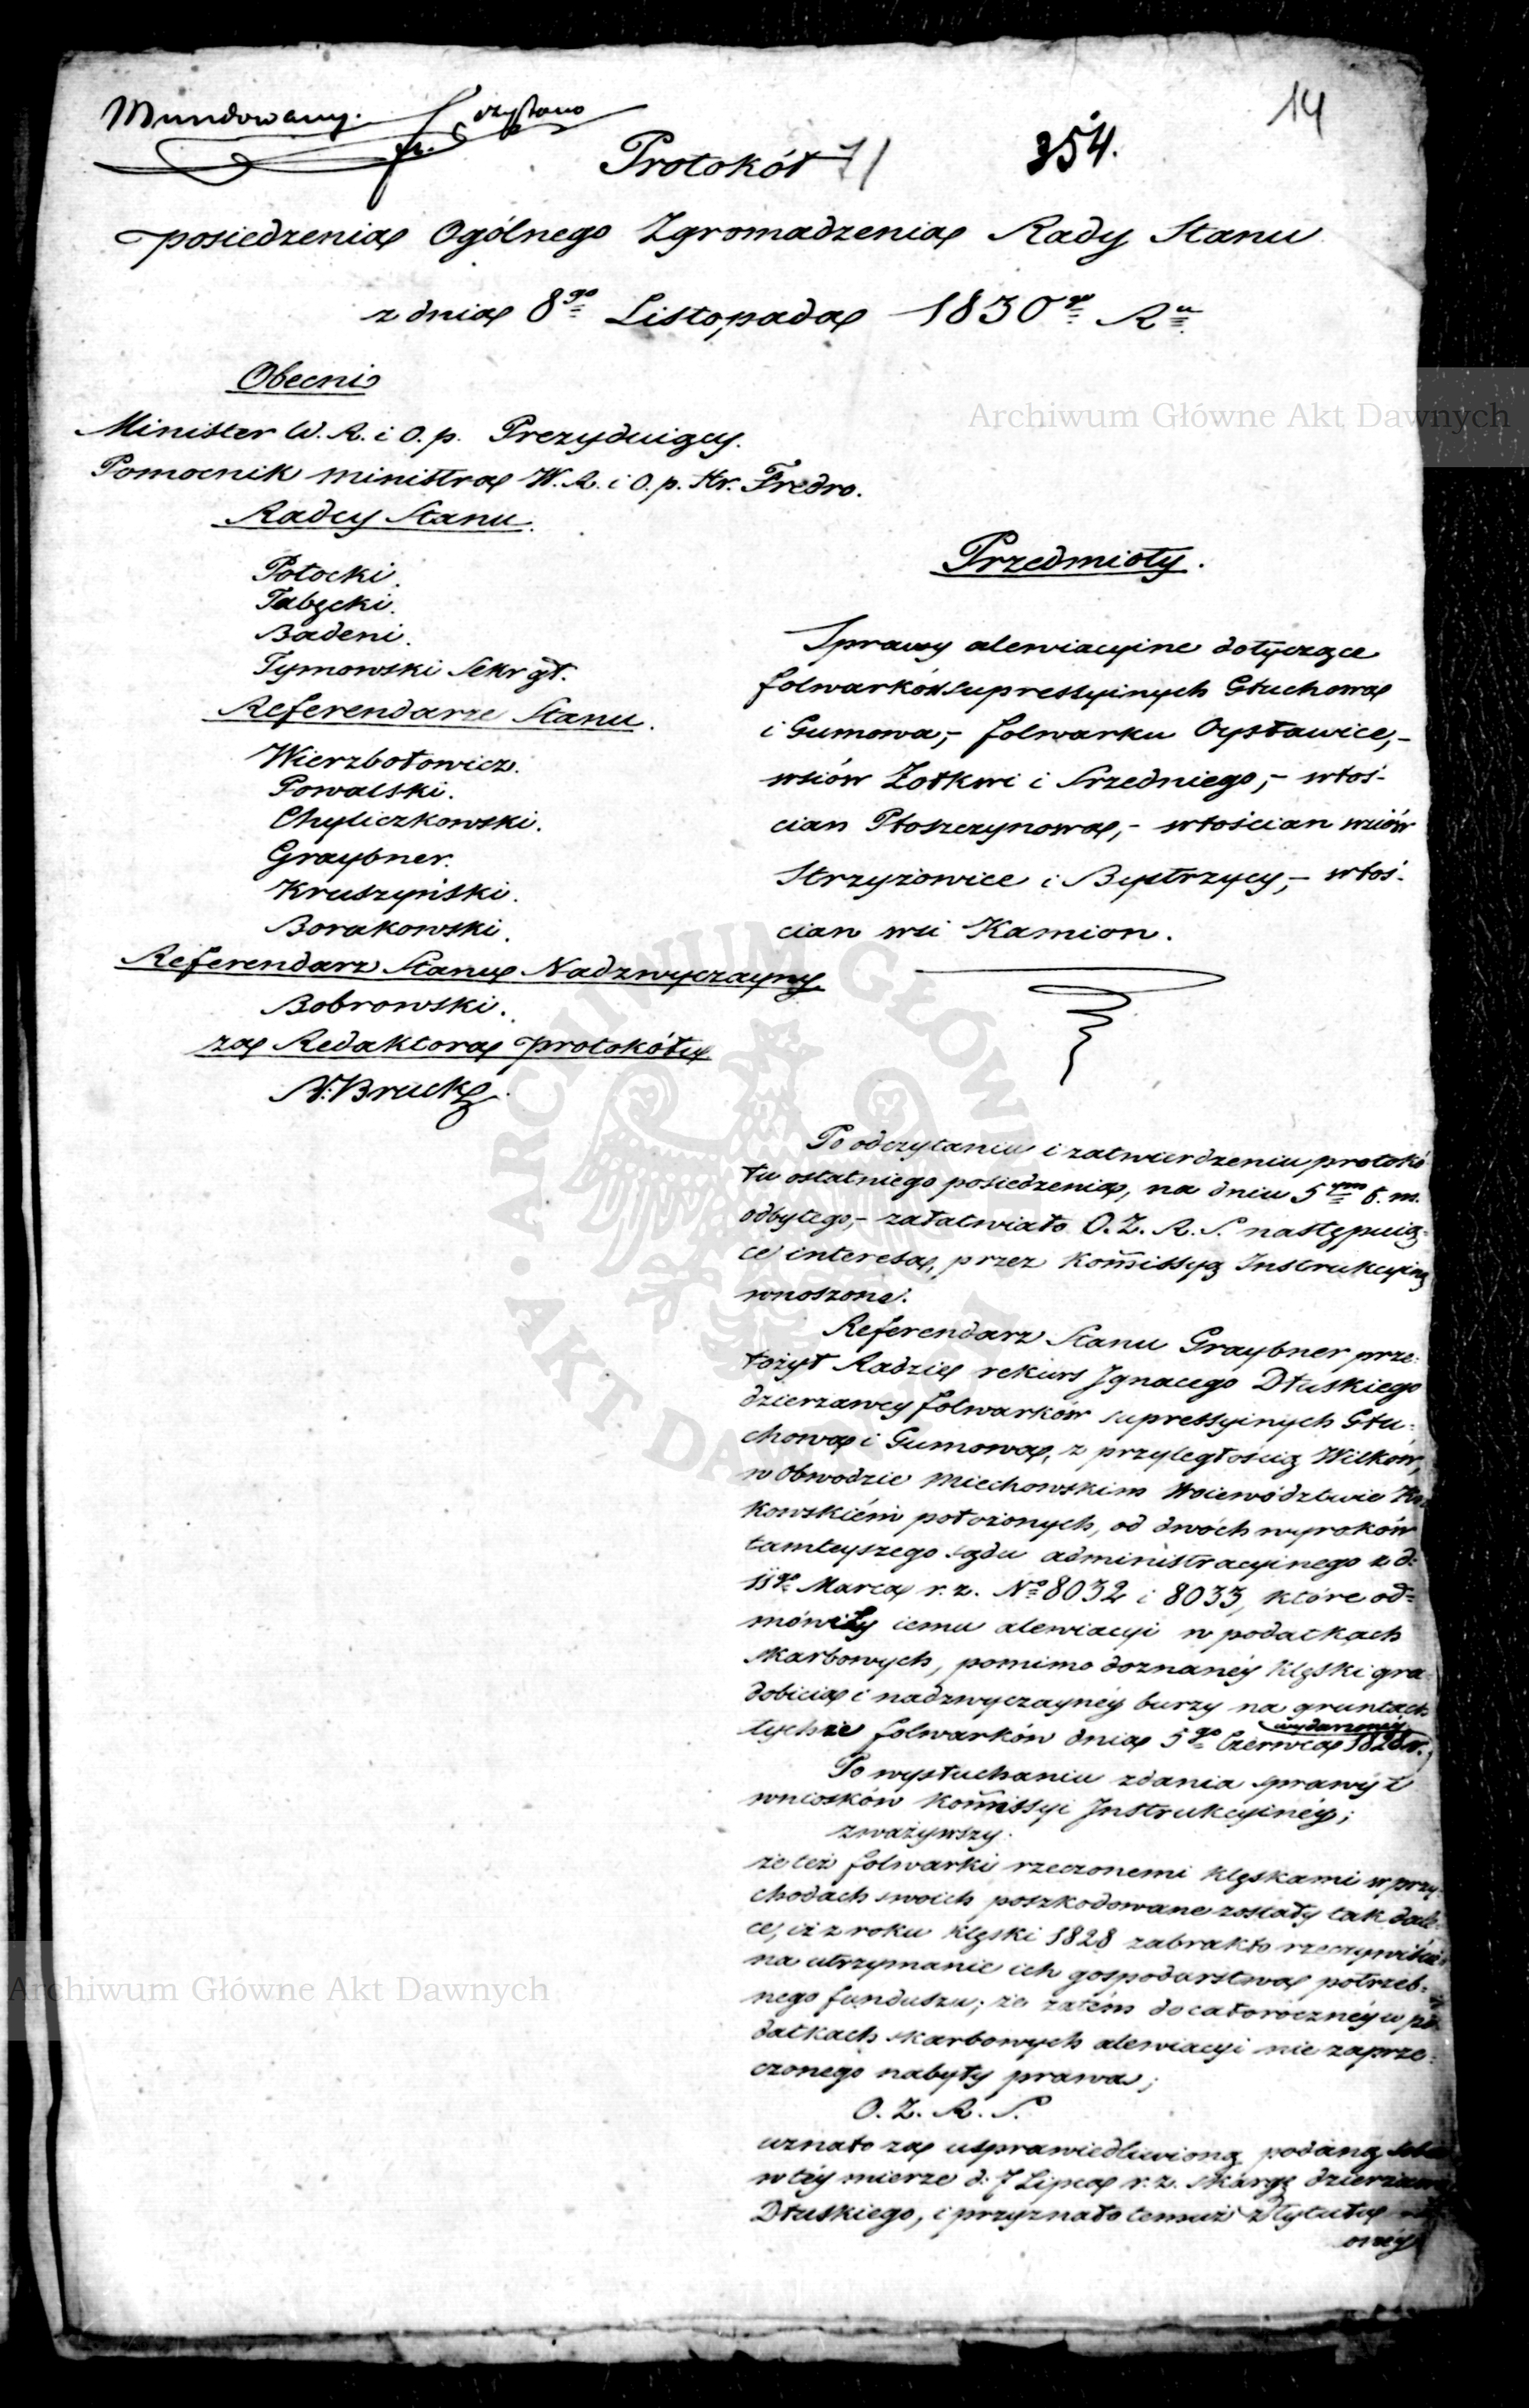 Mundowany. Czytano
14
Protokół 71
354.
posiedzenia Ogólnego Zgromadzenia Rady Stanu
z dnia 8go Listopada 1830go Ru
Obecni
Minister W. R. i O. p. Prezyduiący.
Pomocnik Ministra W. R. i O. p. Hr. Fredro.
Radcy Stanu.
Potocki.
Tabęcki.
Badeni.
Tymowski Sekr gł.
Referendarze Stanu.
Wierzbołowicz.
Powalski.
Chyliczkowski.
Graybner.
Kruszyński.
Borakowski.
Referendarz Stanu Nadzwyczayny
Bobrowski.
za Redaktora protokółu
Bruck
Przedmioty.
Sprawy alewiacyine dotyczące
folwarków supressyinych Głuchowa
i Gumowa,- folwarku Orysławice,-
wsiów Żołkwi i Srzedniego,- włoś-
cian Płoszczynowa,- włościan wsiów
Strzyżowice i Bystrzycy,- włoś-
cian wsi Kamion.
Po odczytaniu i zatwierdzeniu protokó-
łu ostatniego posiedzenia, na dniu 5ym b. m.
odbytego,- załatwiało O. Z. R. S. następuią-
ce interesa, przez Kom̄issyą Instrukcyiną
wnoszone.
Referendarz Stanu Graybner prze-
łożył Radzie rekurs Ignacego Dłuskiego
dzierzawcy folwarków supressyinych Głu-
chowa i Gumowa, z przyległością Wilków,
w Obwodzie Miechowskim Woiewództwie Kra-
kowskiém położonych, od dwóch wyroków
tamteyszego sądu administracyinego z d:
11go Marca r. z. No 8032 i 8033, które od-
mówiły iemu alewiacyi w podatkach
skarbowych, pomimo doznanéy klęski gra-
dobicia i nadzwyczaynéy burzy na gruntach
tychże folwarków dnia 5go Czerwca 1828 r.
wydarzonéy
Po wysłuchaniu zdania sprawy i
wniosków Kom̄issyi Instrukcyinéy;
zważywszy:
że też folwarki rzeczonemi klęskami w przy-
chodach swoich poszkodowane zostały tak dale-
ce, iż z roku klęski 1828 zabrakło rzeczywiście
na utrzymanie ich gospodarstwa potrzeb-
nego funduszu; że zatém do całorocznéy w po-
datkach skarbowych alewiacyi nie zaprze-
czonego nabyły prawa;
O. Z. R. S.
uznało za usprawiedliwioną podaną sobie
w téy mierze d: 7 Lipca r. z. skargę dzierzawcy
Dłuskiego, i przyznało temuż z tytułu
onéy
Archiwum Główne Akt Dawnych
Archiwum Główne Akt Dawnych
ARCHIWUM GŁÓWNE • AKT DAWNYCH •